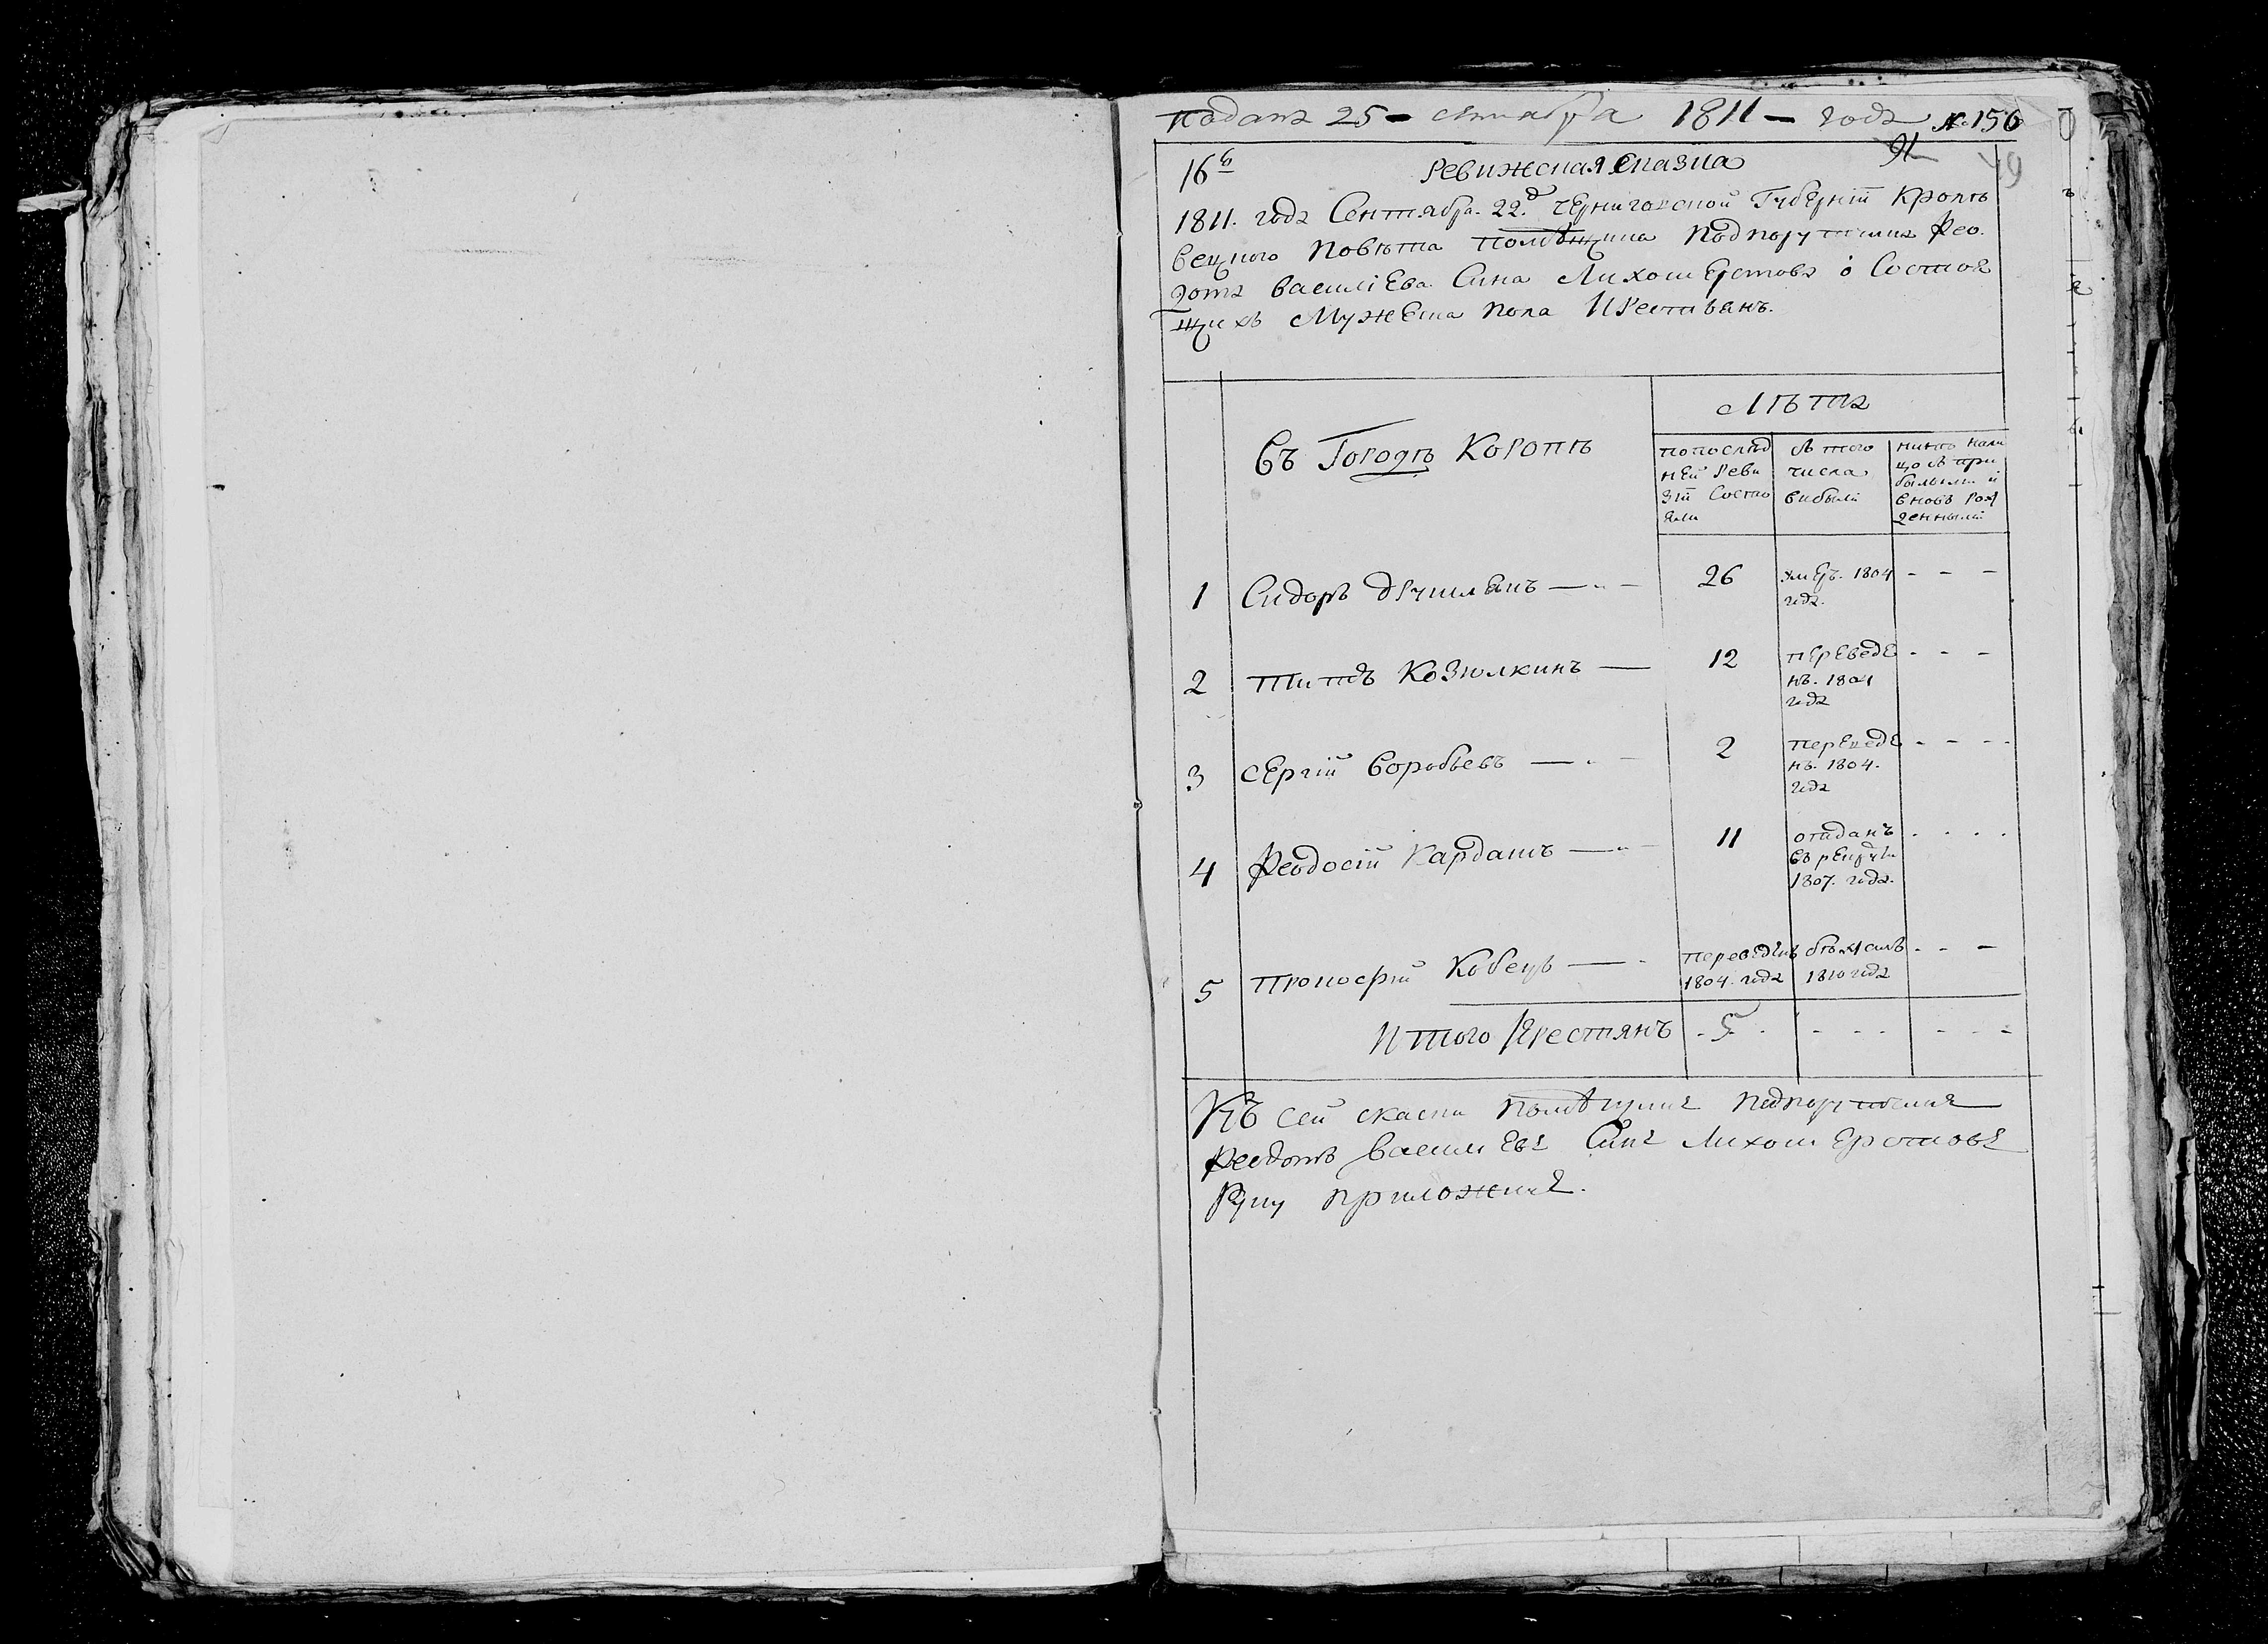 Подана 25 - сентября 1811 - года №. 156
91
49
16й Ревижская Сказка
1811. года Сентября. 22.д Черниговской Губернїи Кролѣ
вецкого Повѣта помѣщика Подпорутчика Ѳео.
дота василїева Сина Лихошерстова о Состоя
щихъ Мужеска пола Крестьянъ.
Лѣта
Въ Городѣ Коропѣ
попослѣд
ней Реви
зїи Состо
яли
Съ того
числа
вибыли
нинѣ нали
цо съ при
былыми и
вновь Рож
денными
1 Сидоръ 26 умеръ. 1804 - - -
года.
2 Титъ Козюлкинъ — 12 переведе - - -
нъ. 1804
года
3 Сергїй Воробьевъ — 2 переведе - - -
нъ. 1804.
года
4 Ѳеодосїй Кардашъ — 11 отаданъ . . . .
въ рекруты
1807. года.
5 Прокофїй Кобецъ — переведенъ бѣжалъ - - -
1804. года 1810 года
Итого Крестянъ - 5 - - - - - - -
Къ сей скаски помѣщикъ подпорутчикъ
Ѳеодотъ Василиевъ Синъ Лихошерстовъ
Руку приложилъ.